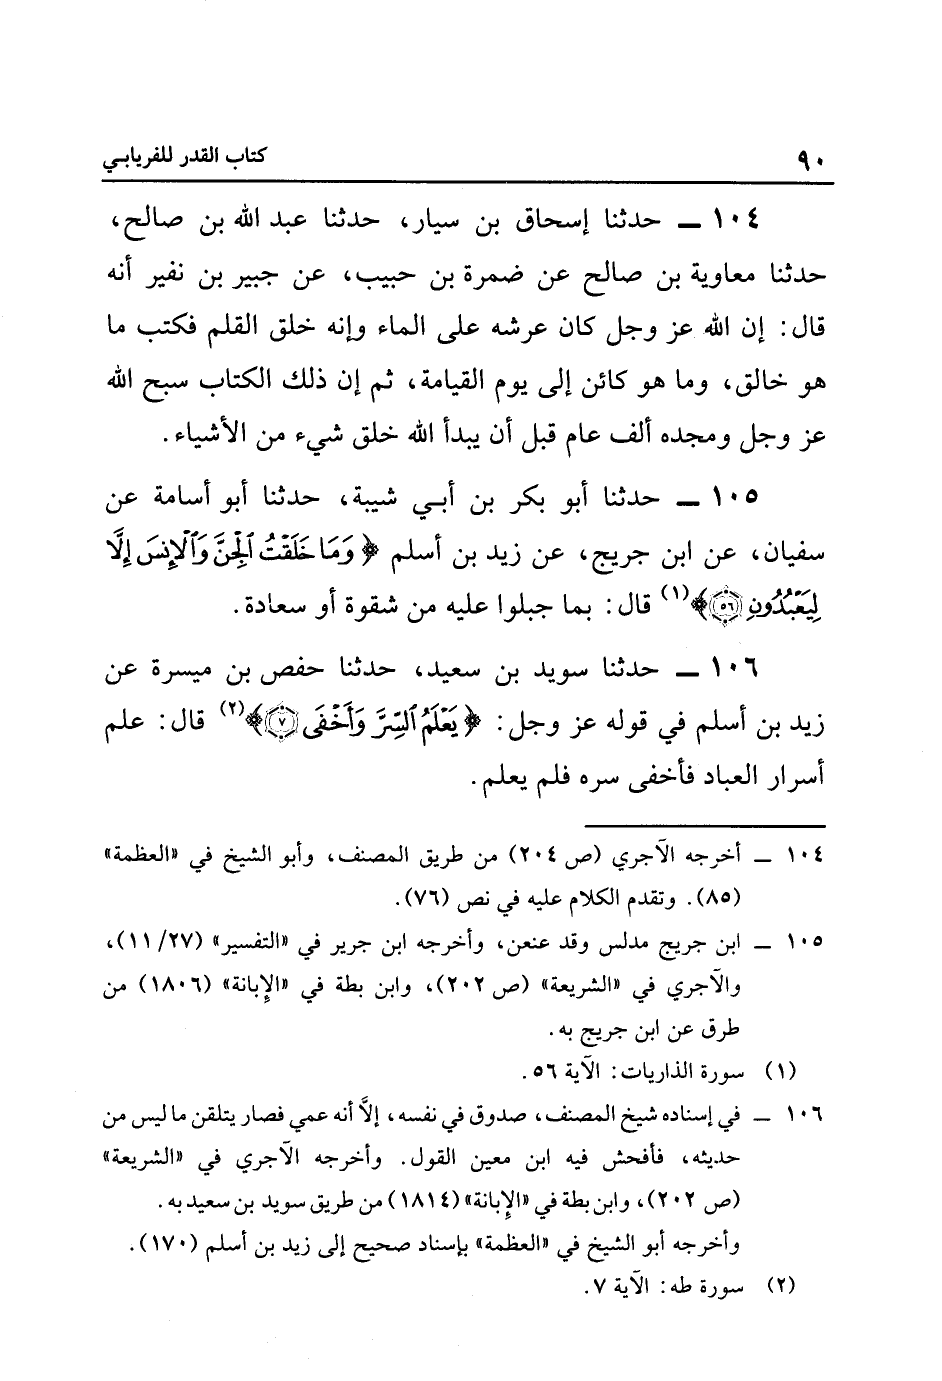 ٩٠ كتاب القدر للفريابي
١٠٤ ــ حدثنا إسحاق بن سيار، حدثنا عبد الله بن صالح،
حدثنا معاوية بن صالح عن ضمرة بن حبيب، عن جبير بن نفير أنه
قال: إن الله عز وجل كان عرشه على الماء وإنه خلق القلم فكتب ما
هو خالق، وما هو كائن إلى يوم القيامة، ثم إن ذلك الكتاب سبح الله
عز وجل ومجده ألف عام قبل أن يبدأ الله خلق شيء من الأشياء.
١٠٥ ــ حدثنا أبو بكر بن أبي شيبة، حدثنا أبو أسامة عن
سفيان، عن ابن جريج، عن زيد بن أسلم ﴿وَمَا خَلَقْتُ ٱلْجِنَّ وَٱلْإِنسَ إِلَّا
لِيَعْبُدُونِ ٥٦﴾(١) قال: بما جبلوا عليه من شقوة أو سعادة.
١٠٦ ــ حدثنا سويد بن سعيد، حدثنا حفص بن ميسرة عن
زيد بن أسلم في قوله عز وجل: ﴿يَعْلَمُ ٱلسِّرَّ وَأَخْفَى ٧﴾(٢) قال: علم
أسرار العباد فأخفى سره فلم يعلم.
١٠٤ ــ أخرجه الآجري (ص ٢٠٤) من طريق المصنف، وأبو الشيخ في «العظمة»
(٨٥). وتقدم الكلام عليه في نص (٧٦).
١٠٥ ــ ابن جريج مدلس وقد عنعن، وأخرجه ابن جرير في «التفسير» (١١/٢٧)،
والآجري في «الشريعة» (ص ٢٠٢)، وابن بطة في «الإبانة» (١٨٠٦) من
طرق عن ابن جريج به.
(١) سورة الذاريات: الآية ٥٦.
١٠٦ ــ في إسناده شيخ المصنف، صدوق في نفسه، إلاَّ أنه عمي فصار يتلقن ما ليس من
حديثه، فأفحش فيه ابن معين القول. وأخرجه الآجري في «الشريعة»
(ص ٢٠٢)، وابن بطة في «الإبانة» (١٨١٤) من طريق سويد بن سعيد به.
وأخرجه أبو الشيخ في «العظمة» بإسناد صحيح إلى زيد بن أسلم (١٧٠).
(٢) سورة طه: الآية ٧.